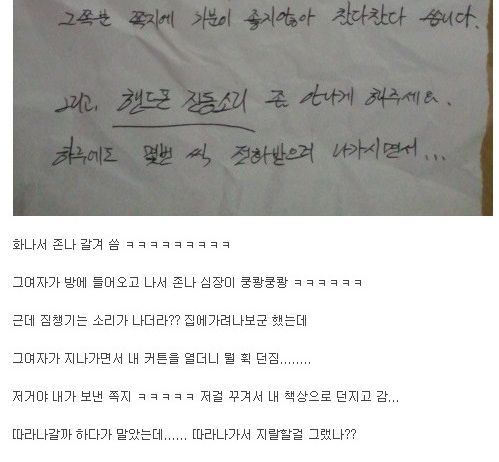 그쪽분 쪽지에 기분이 좋지않아 찬다찬다 씁니다.
그리고, 핸드폰 진동소리 좀 안나게 해주세요.
하루에도 몇번 씩 전화받으러 나가시면서...
화나서 존나 갈겨 씀 ㅋㅋㅋㅋㅋㅋㅋㅋㅋ
그여자가 방에 들어오고 나서 존나 심장이 쿵쾅쿵쾅 ㅋㅋㅋㅋㅋㅋ
근데 짐챙기는 소리가 나더라?? 집에가려나보군 했는데
그여자가 지나가면서 내 커튼을 열더니 뭘 휙 던짐........
저거야 내가 보낸 쪽지 ㅋㅋㅋㅋㅋ 저걸 꾸겨서 내 책상으로 던지고 감...
따라나갈까 하다가 말았는데...... 따라나가서 지랄할걸 그랬나??